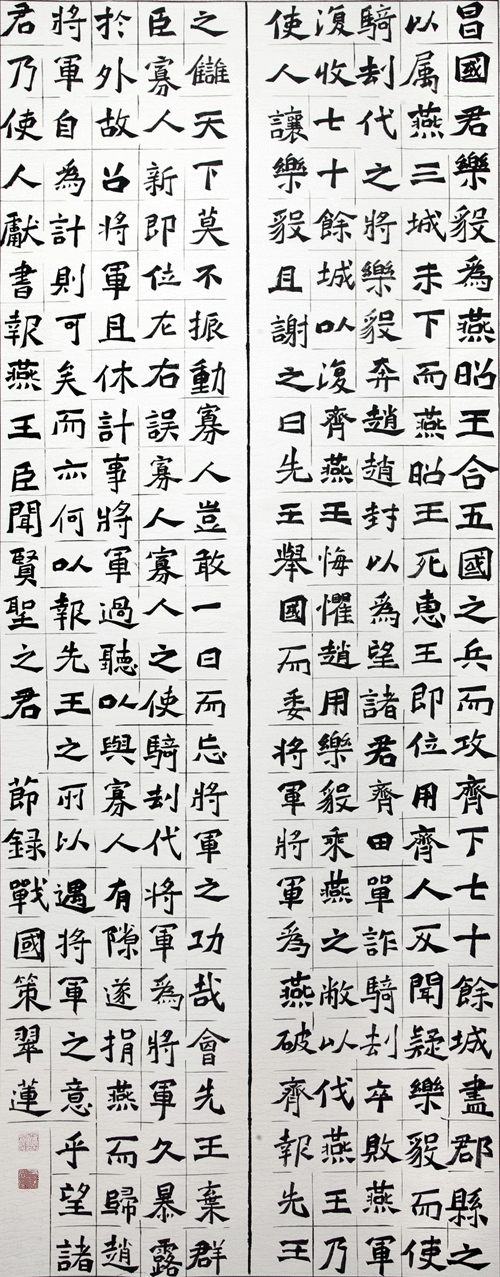 昌國君樂毅為燕昭王合五國之兵而攻齊下七十餘城盡郡縣之
以属燕三城未下而燕昭王死惠王即位用齊人反聞疑樂毅而使
騎刦代之將樂毅奔趙趙封以為望諸君齊田單詐騎刦卒敗燕軍
復收七十餘城以復齊燕王悔懼趙用樂毅乘燕之敝以伐燕王乃
使人讓樂毅且謝之曰先王舉國而委將軍將軍為燕破齊報先王
之讎天下莫不振動寡人豈敢一日而忘將軍之功哉會先王棄群
臣寡人新即位左右誤寡人寡人之使騎刦代將軍為將軍久暴露
於外故召將軍且休計事將軍過聽以與寡人有隙遂捐燕而歸趙
將軍自為計則可矣而亦何以報先王之所以遇將軍之意乎望諸
君乃使人獻書報燕王臣聞賢聖之君 節録戰國策翠蓮